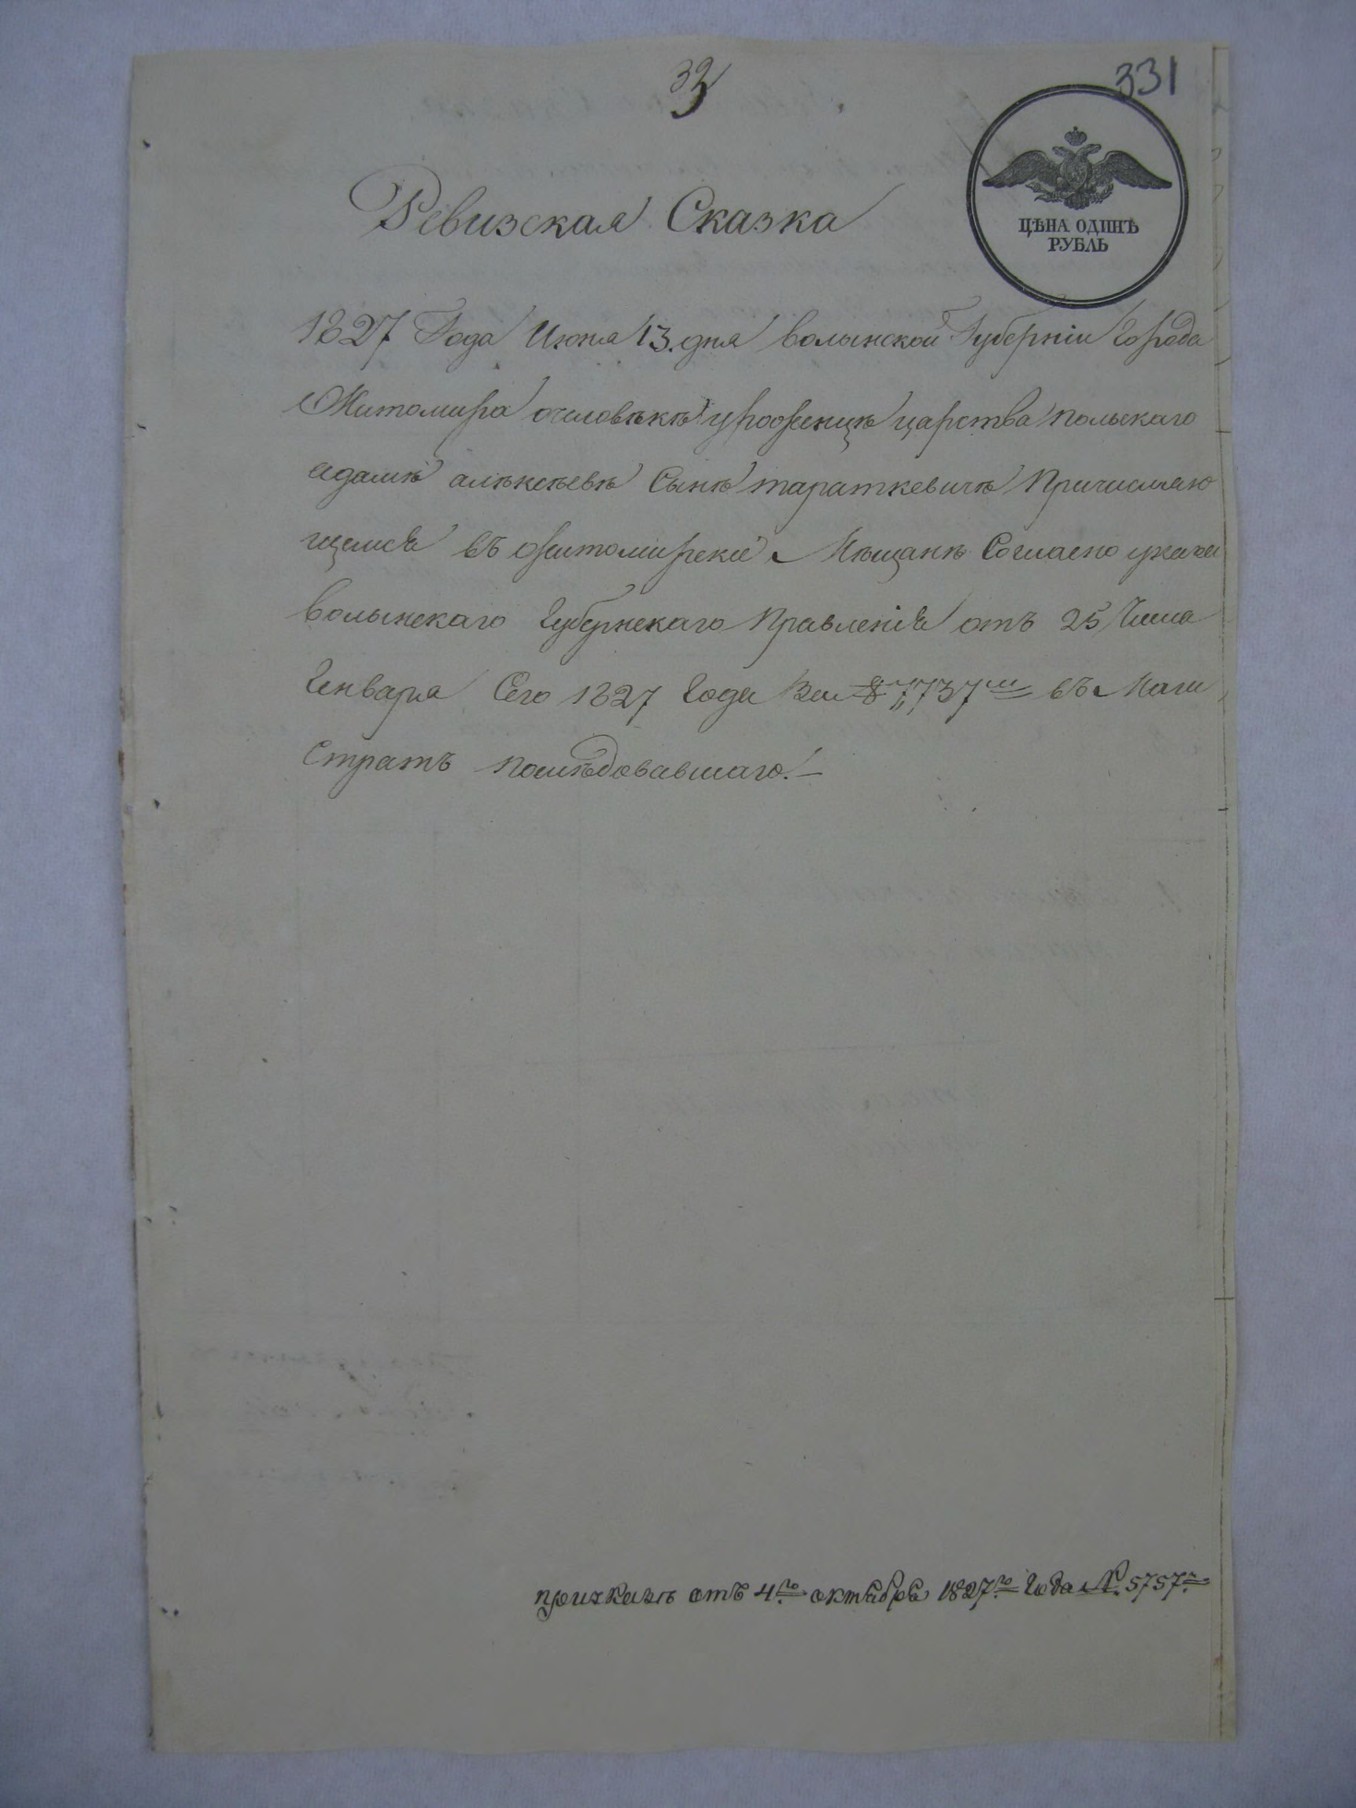 331
33
ЦѢНА ОДИНЪ
РУБЛЬ
Ревизская Сказка
1827 Года Июня 13. дня волынской Губерніи Города
Житомира очеловѣкѣ урооженцѣ царства польскаго
адамѣ алѣксѣевѣ Сынѣ тараткевичѣ Причисляю
щемся въ житомирскіе Мѣщанѣ Согласно указа
волынскаго Губернскаго Правленія отъ 25 Числа
Генваря Сего 1827 Года За № 7,737 въ Маги
Стратъ послѣдовавшаго.
отъ 4го октября 1827го Года № 5757